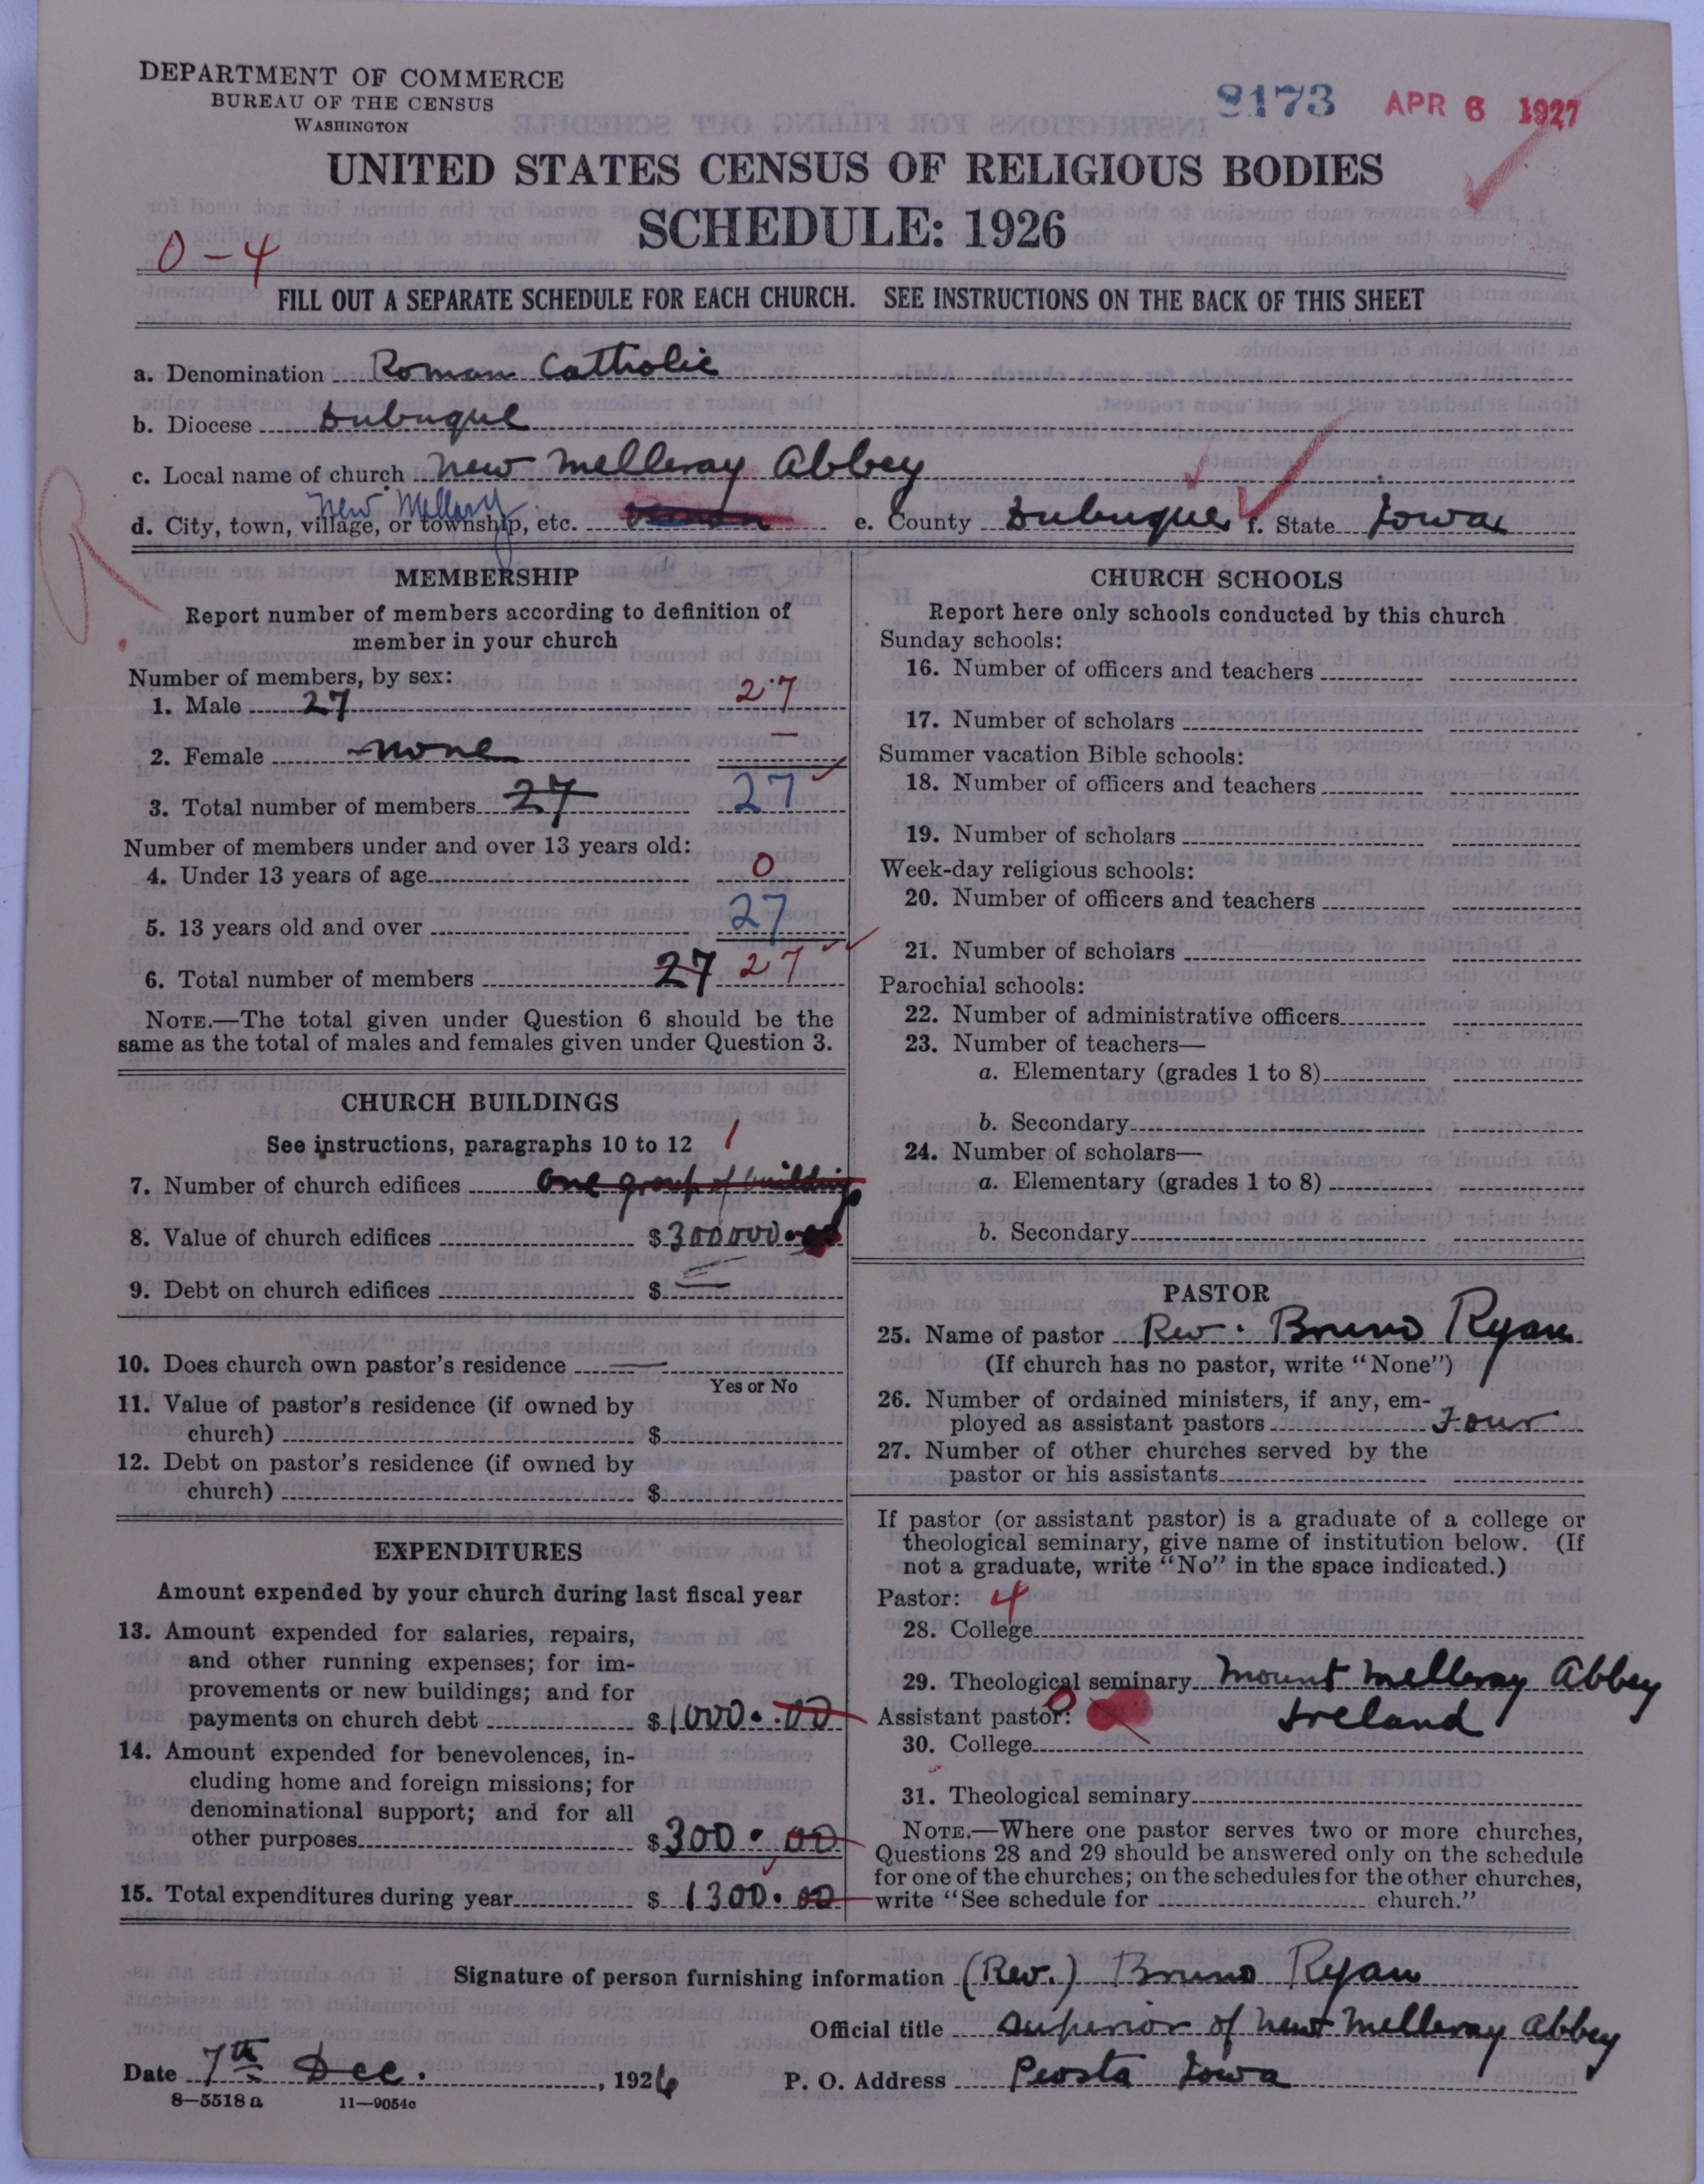 DEPARTMENT OF COMMERCE
BUREAU OF THE CENSUS
WASHINGTON
8173 APR 6 1927
UNITED STATES CENSUS OF RELIGIOUS BODIES
SCHEDULE: 1926
0-4
FILL OUT A SEPARATE SCHEDULE FOR EACH CHURCH. SEE INSTRUCTIONS ON THE BACK OF THIS SHEET
a. Denomination Roman Catholic
b. Diocese Dubuque
c. Local name of church New Melleray Abbey
New Mellary
d. City, town, village, or township, etc. e. County Dubuque f. State Iowa
R
MEMBERSHIP
Report number of members according to definition of
member in your church
Number of members, by sex:
1. Male 27 27
2. Female none —
3. Total number of members 27 27
Number of members under and over 13 years old:
4. Under 13 years of age 0
5. 13 years old and over 27
6. Total number of members 27 27
NOTE.—The total given under Question 6 should be the
same as the total of males and females given under Question 3.
CHURCH BUILDINGS
See instructions, paragraphs 10 to 12 1
7. Number of church edifices One group of buildings
8. Value of church edifices $300000.
9. Debt on church edifices $ —
10. Does church own pastor's residence —
Yes or No
11. Value of pastor's residence (if owned by
church) $
12. Debt on pastor's residence (if owned by
church) $
EXPENDITURES
Amount expended by your church during last fiscal year
13. Amount expended for salaries, repairs,
and other running expenses; for im-
provements or new buildings; and for
payments on church debt $1000.00
14. Amount expended for benevolences, in-
cluding home and foreign missions; for
denominational support; and for all
other purposes $300.00
15. Total expenditures during year $1300.00
CHURCH SCHOOLS
Report here only schools conducted by this church
Sunday schools:
16. Number of officers and teachers
17. Number of scholars
Summer vacation Bible schools:
18. Number of officers and teachers
19. Number of scholars
Week-day religious schools:
20. Number of officers and teachers
21. Number of scholars
Parochial schools:
22. Number of administrative officers
23. Number of teachers—
a. Elementary (grades 1 to 8)
b. Secondary
24. Number of scholars—
a. Elementary (grades 1 to 8)
b. Secondary
PASTOR
25. Name of pastor Rev. Bruno Ryan
(If church has no pastor, write "None")
26. Number of ordained ministers, if any, em-
ployed as assistant pastors Four
27. Number of other churches served by the
pastor or his assistants
If pastor (or assistant pastor) is a graduate of a college or
theological seminary, give name of institution below. (If
not a graduate, write "No" in the space indicated.)
Pastor: 4
28. College
29. Theological seminary Mount Melleray Abbey
Assistant pastor: 0 Ireland
30. College
31. Theological seminary
NOTE.—Where one pastor serves two or more churches,
Questions 28 and 29 should be answered only on the schedule
for one of the churches; on the schedules for the other churches,
write "See schedule for church."
Signature of person furnishing information (Rev.) Bruno Ryan
Official title Superior of New Melleray Abbey
Date 7th Dec. , 1926 P. O. Address Peosta Iowa
8—5518a 11—9054c